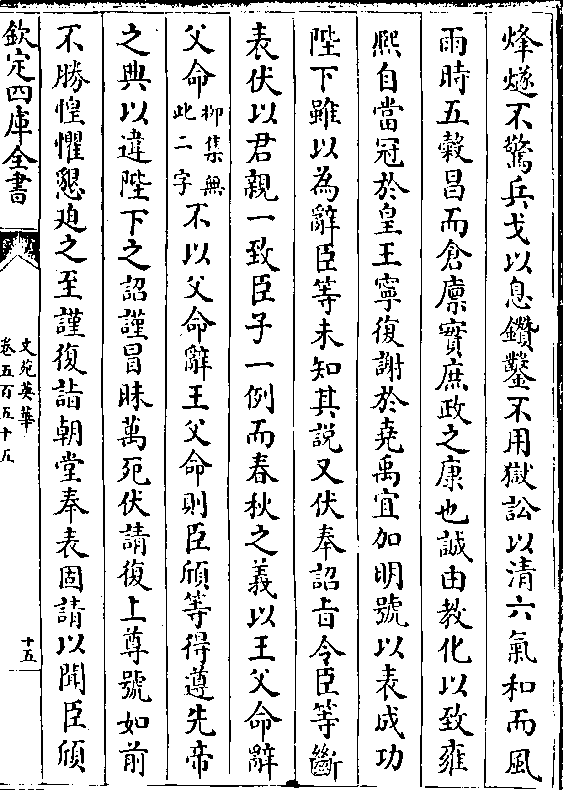 烽燧不驚兵戈以息鑽鑿不用獄訟以清六氣和而風
雨時五穀昌而倉廪實庶政之康也誠由教化以致雍
熙自當冠於皇王寧復謝於堯禹宜加明號以表成功
陛下雖以為辭臣等未知其説又伏奉詔㫖令臣等斷
表伏以君親一致臣子一例而春秋之義以王父命辭
父命柳集無此二字不以父命辭王父命則臣頎等得遵先帝
之典以違陛下之詔謹冒昧萬死伏請復上尊號如前
不勝惶懼懇迫之至謹復詣朝堂奉表固請以聞臣頎
欽定四庫全書
文苑英華
卷五百五十五
十五